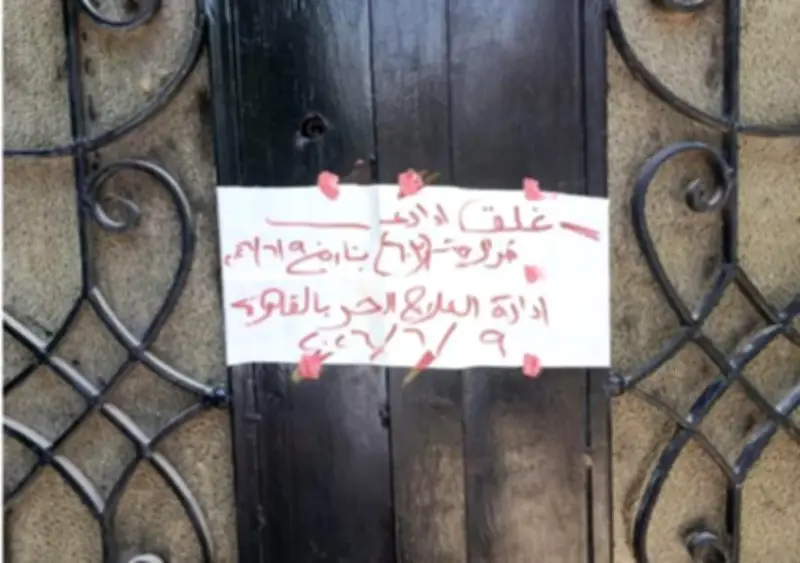 غلق إداري
قرار رقم (٦٠٢) بتاريخ ٢٠٢٦/٦/٩
ادارة العلاج الحر بالقاهرة
٢٠٢٦/٦/٩